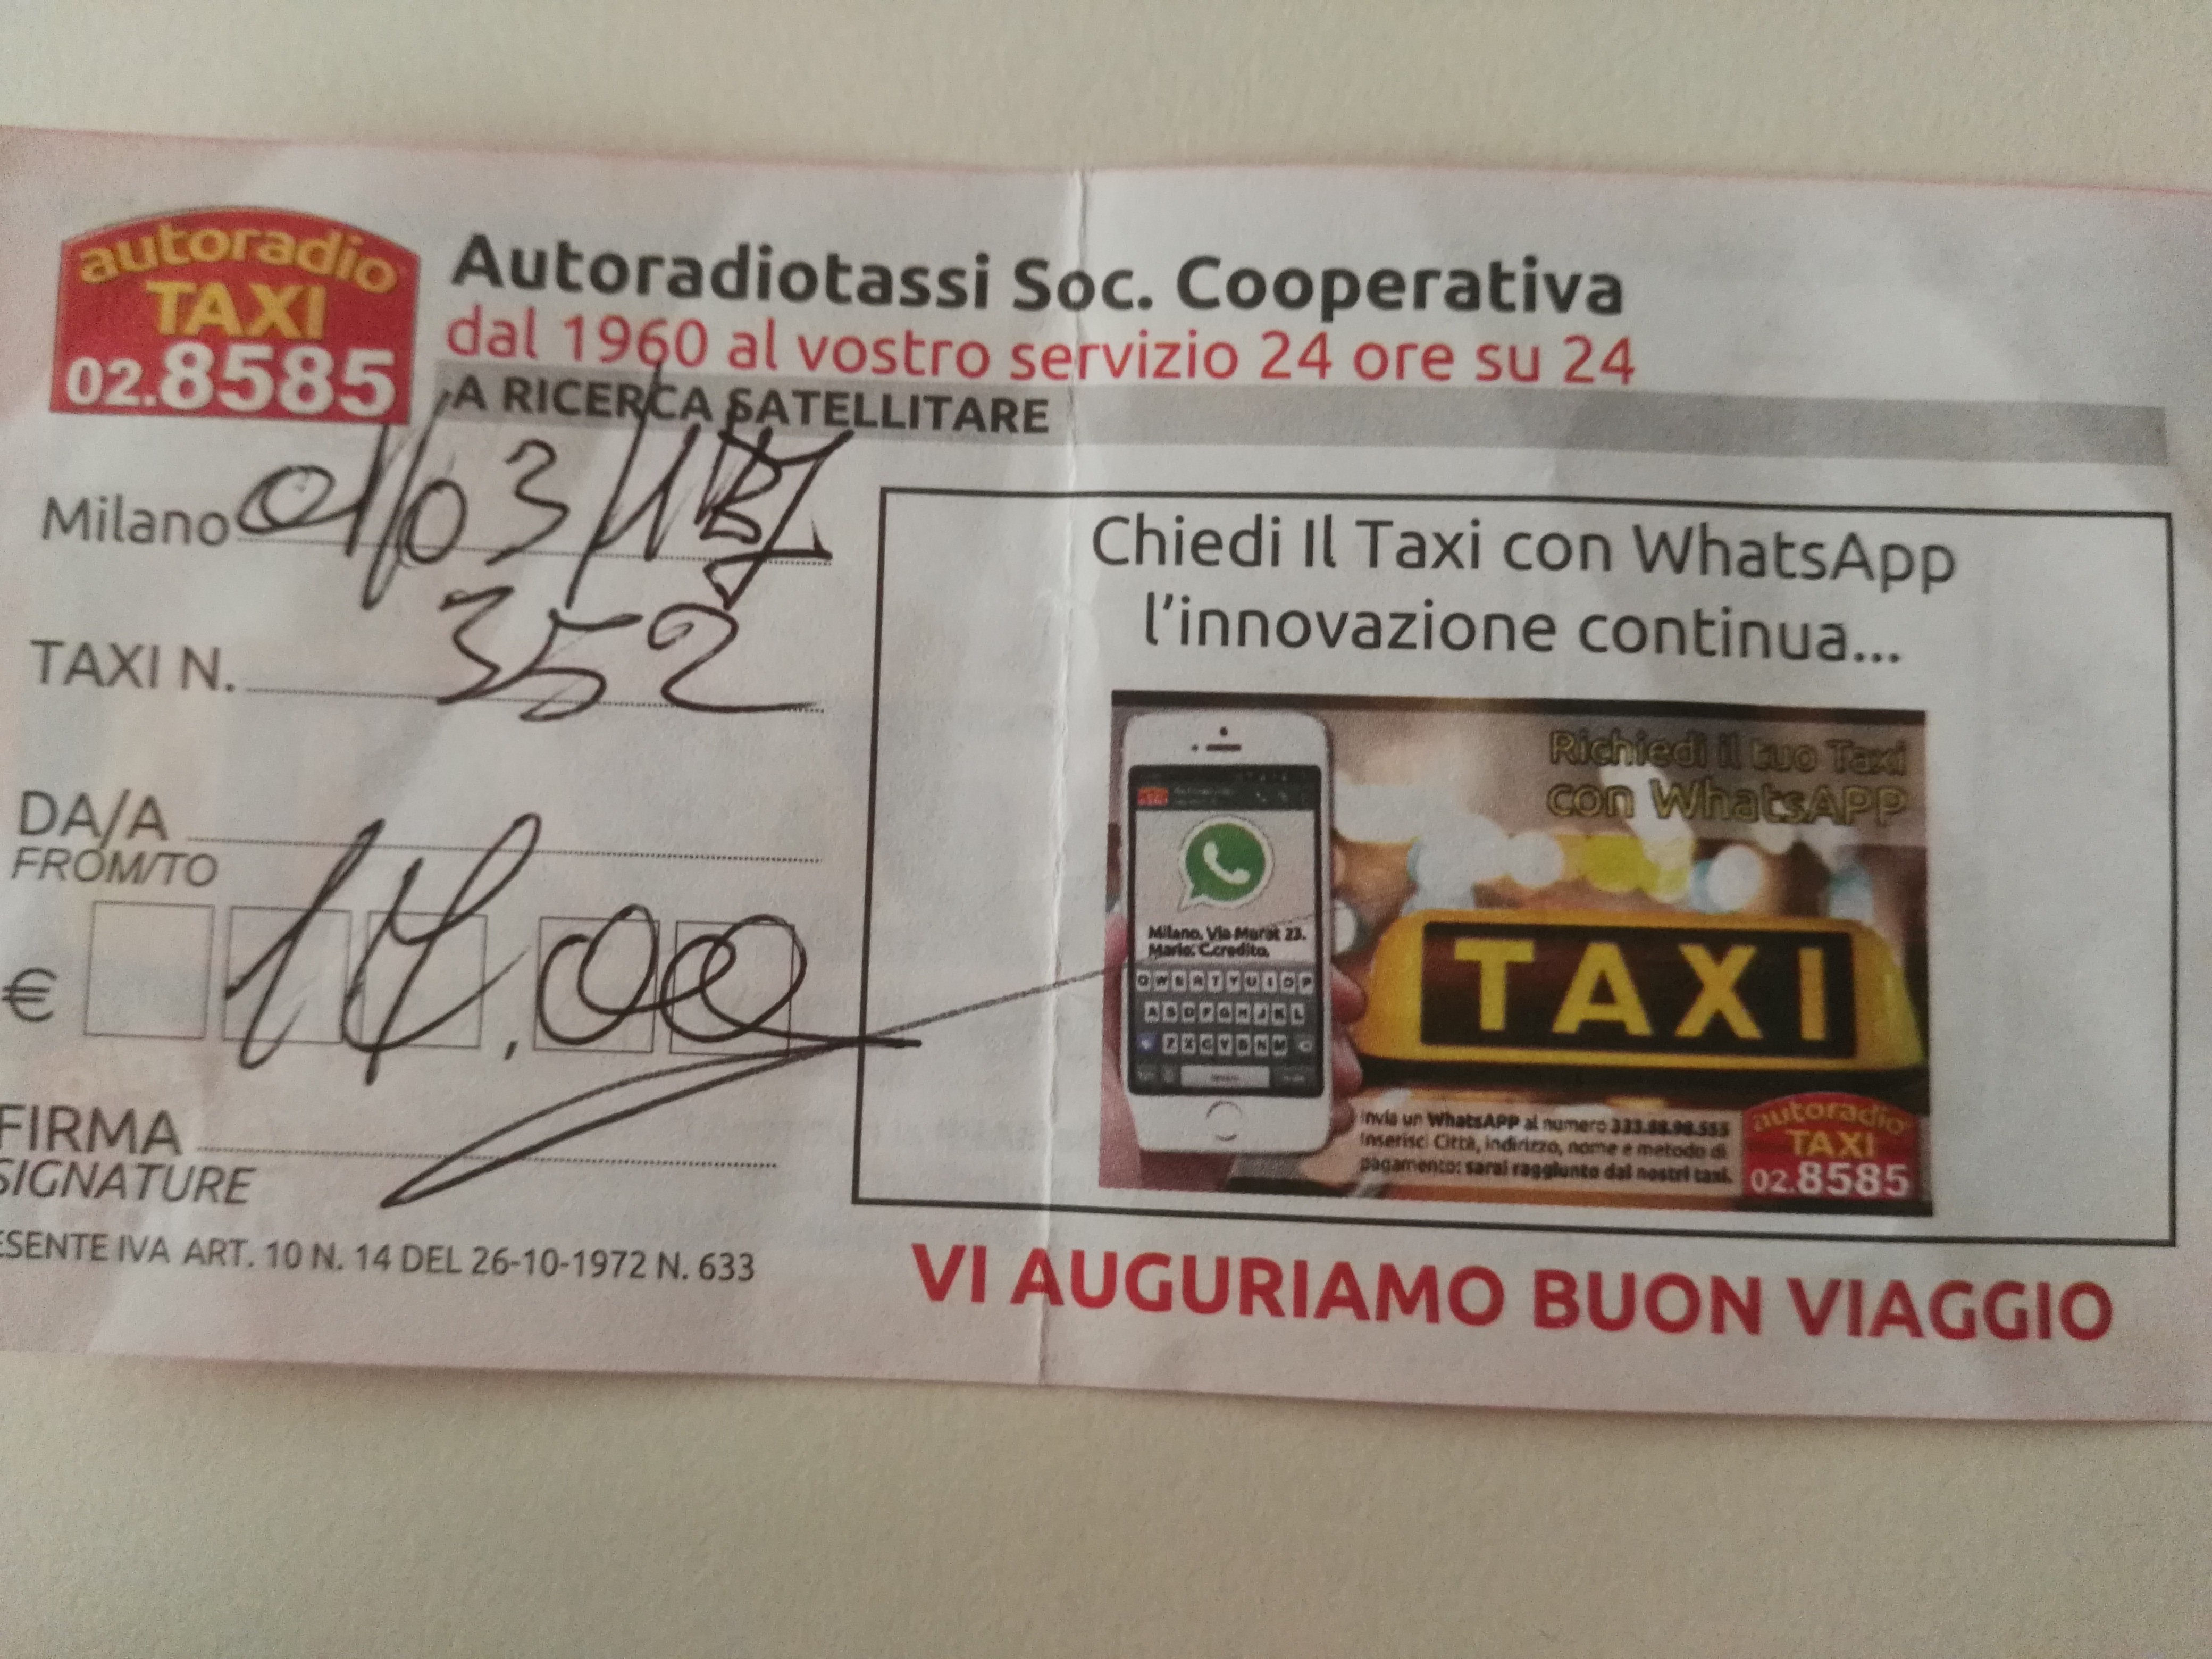 autoradio
TAXI
02.8585
Autoradiotassi Soc. Cooperativa
dal 1960 al vostro servizio 24 ore su 24
A RICERCA SATELLITARE
Milano 01/03/
TAXI N. 352
DA/A
FROM/TO
€ 14,00
FIRMA
SIGNATURE
ESENTE IVA ART. 10 N. 14 DEL 26-10-1972 N. 633
Chiedi Il Taxi con WhatsApp
l'innovazione continua...
Richiedi il tuo Taxi
con WhatsAPP
Milano, Via Murat 23.
Mario. C.credito.
Q W E R T Y U I O P
A S D F G H J K L
Z X C V B N M
TAXI
Invia un WhatsAPP al numero 333.88.98.555
Inserisci Città, indirizzo, nome e metodo di
pagamento: sarai raggiunto dai nostri taxi.
autoradio
TAXI
02.8585
VI AUGURIAMO BUON VIAGGIO